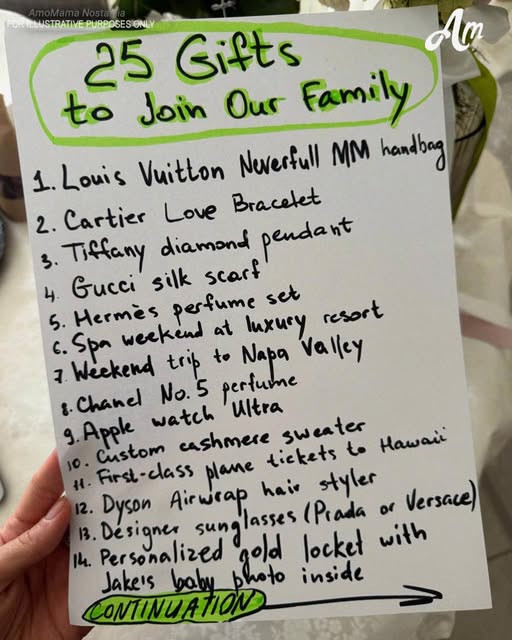 AmoMama Nostalgia
FOR ILLUSTRATIVE PURPOSES ONLY
Am
25 Gifts
to Join Our Family
1. Louis Vuitton Neverfull MM handbag
2. Cartier Love Bracelet
3. Tiffany diamond pendant
4. Gucci silk scarf
5. Hermès perfume set
6. Spa weekend at luxury resort
7. Weekend trip to Napa Valley
8. Chanel No. 5 perfume
9. Apple watch Ultra
10. Custom cashmere sweater
11. First-class plane tickets to Hawaii
12. Dyson Airwrap hair styler
13. Designer sunglasses (Prada or Versace)
14. Personalized gold locket with
Jake's baby photo inside
CONTINUATION